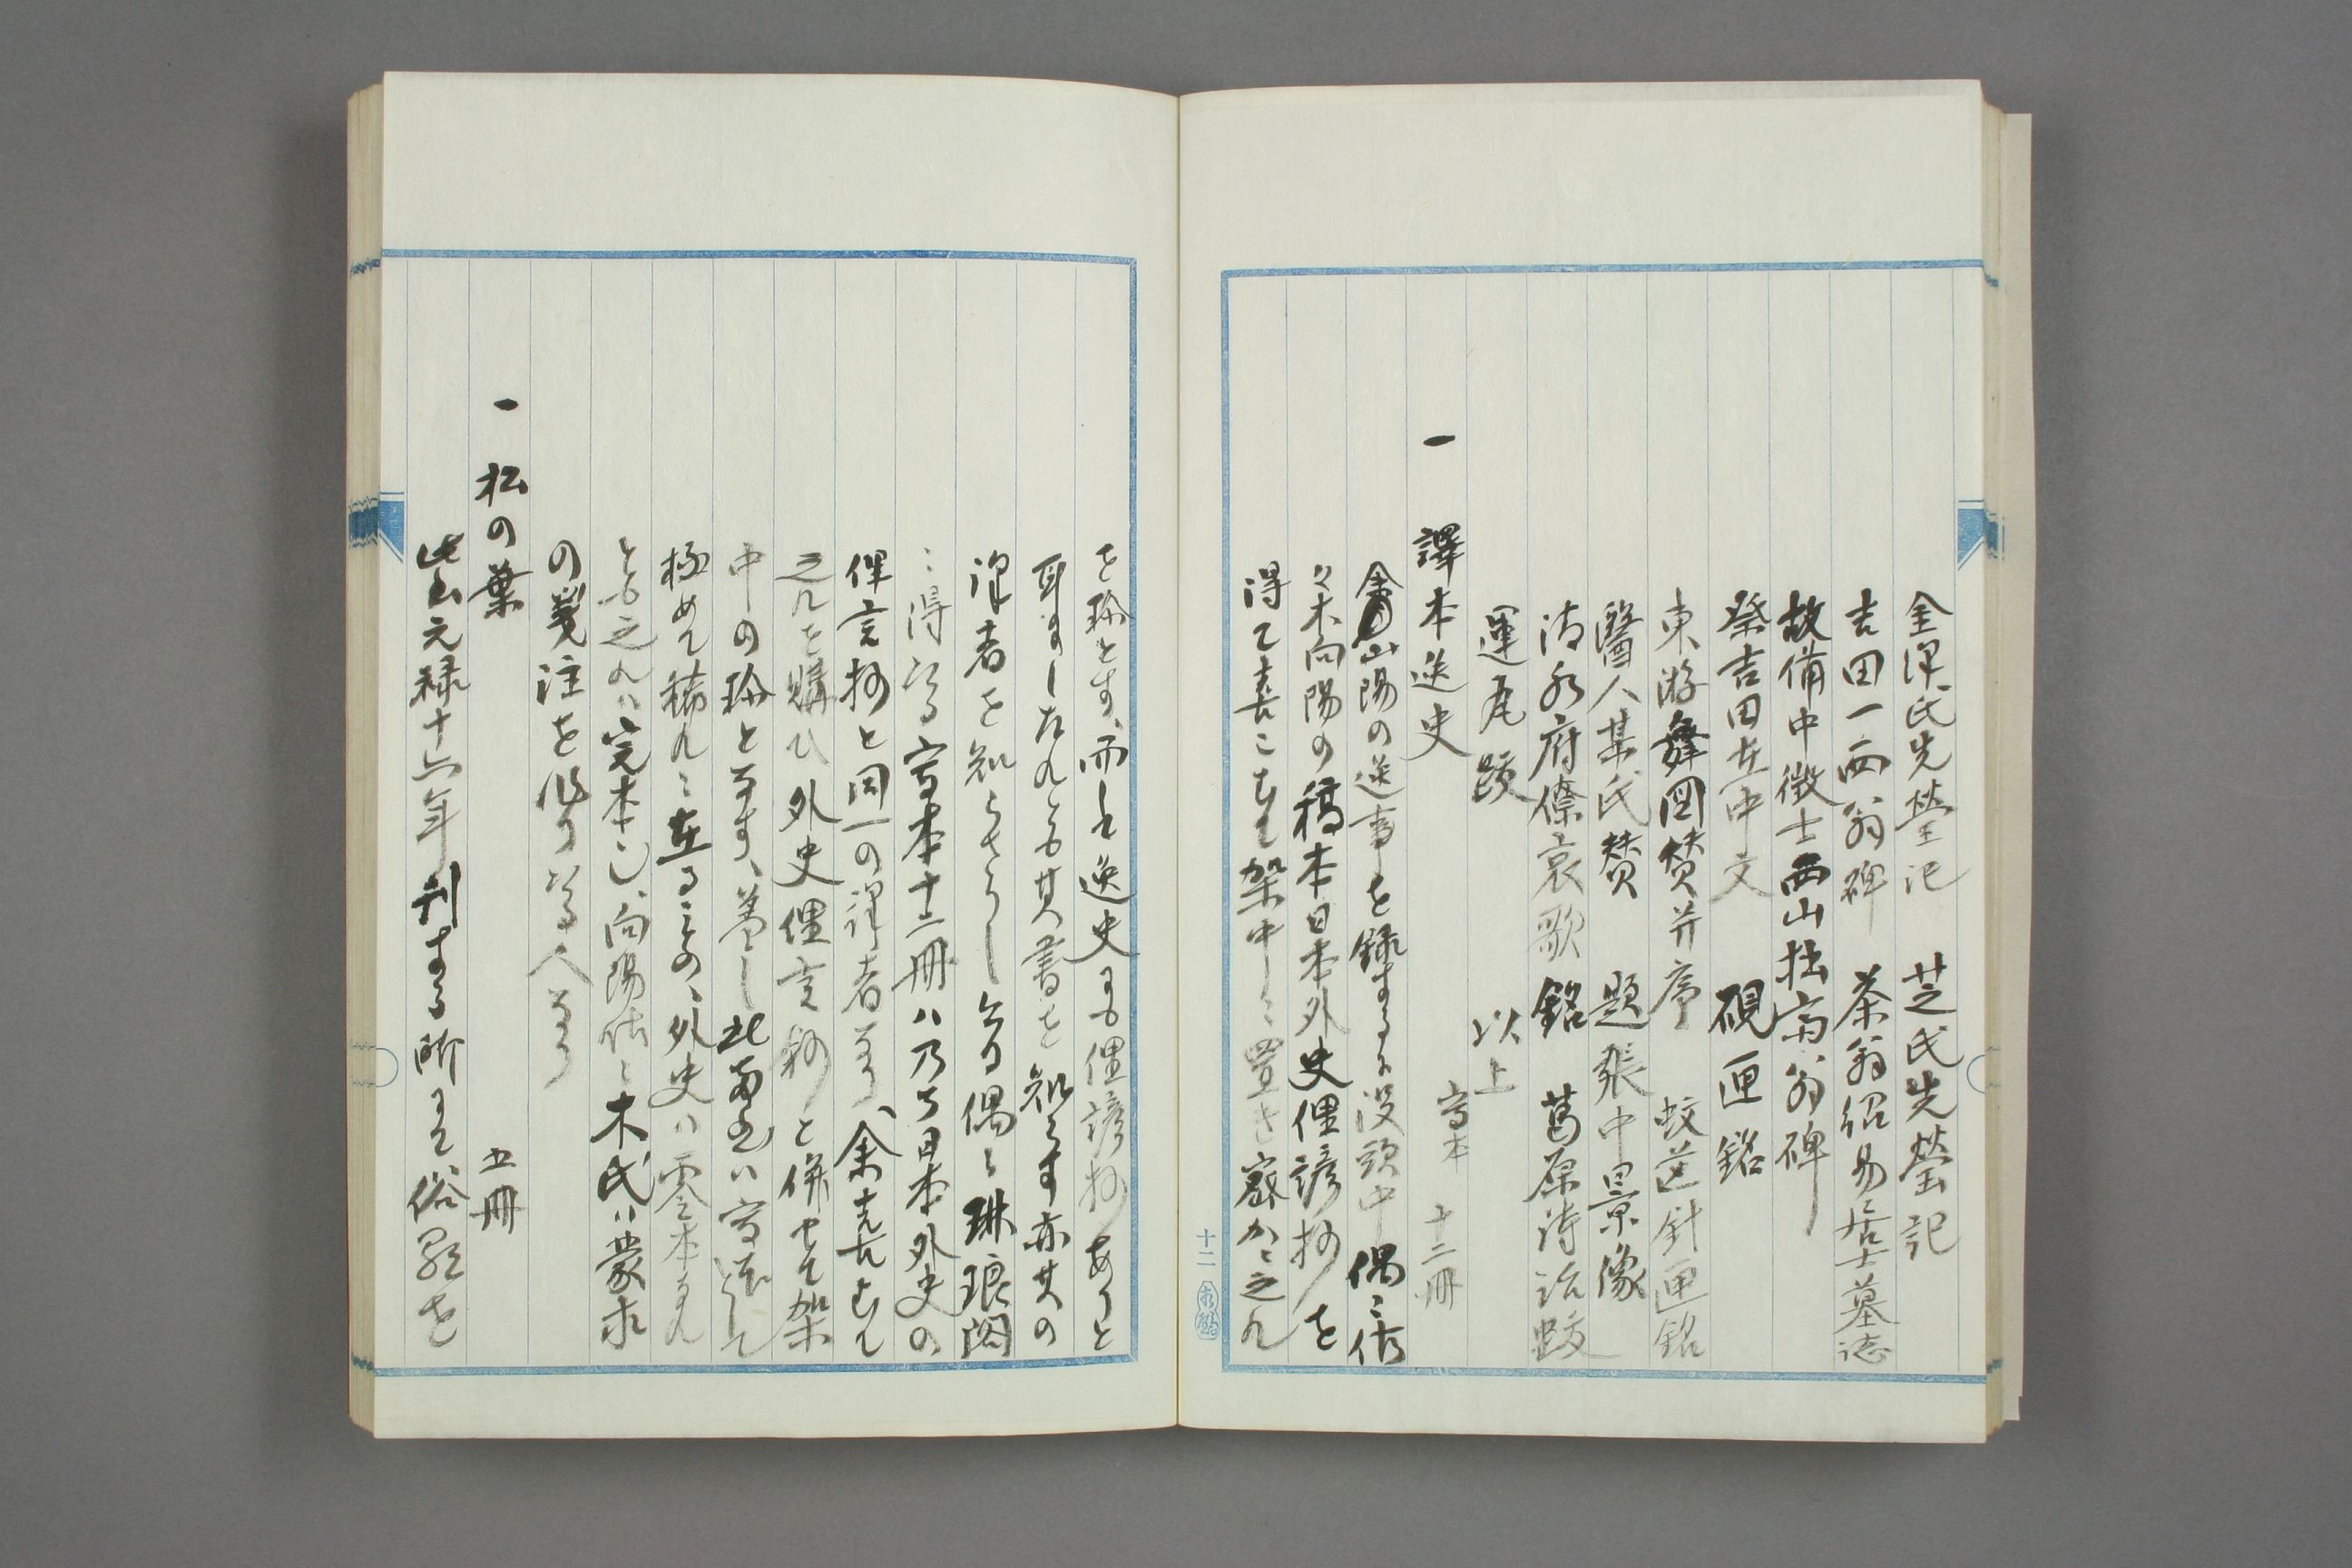 金澤氏先塋記 芝氏先塋記
吉田一両翁碑 茶翁紹易居士墓誌
故備中徴士西山拙斎翁碑
祭吉田在中文 硯匣銘
東游舞図賛并序 蚊遣針匣銘
醫人某氏賛 題張中景像
清水府僚哀歌銘 葛原詩話跋
運甓跋 以上
一 譯本逸史 写本 十二冊
余山陽の逸事を録するに没頭中偶々佐
々木向陽の稿本日本外史俚諺抄を
得て喜こむて架中に置き密かに之れ
を珍とす、而して逸史にも俚諺抄ありと
耳にしたれとも其書を知らす亦其の
譯者を知らさりし今日偶々琳琅閣
に得たる写本十二冊ハ乃ち日本外史の
俚言抄と同一の譯者なり、余喜むて
之れを購ひ外史俚言鈔と併せて架
中の珍となす、蓋し此書ハ写本として
極めて稀れに在るもの、外史ハ零本なれ
とも之れハ完本也、向陽佐々木氏ハ蒙求
の箋注を作りたる人なり
一 松の葉 五冊
此書元禄十六年刊する所にて俗謡を
十二